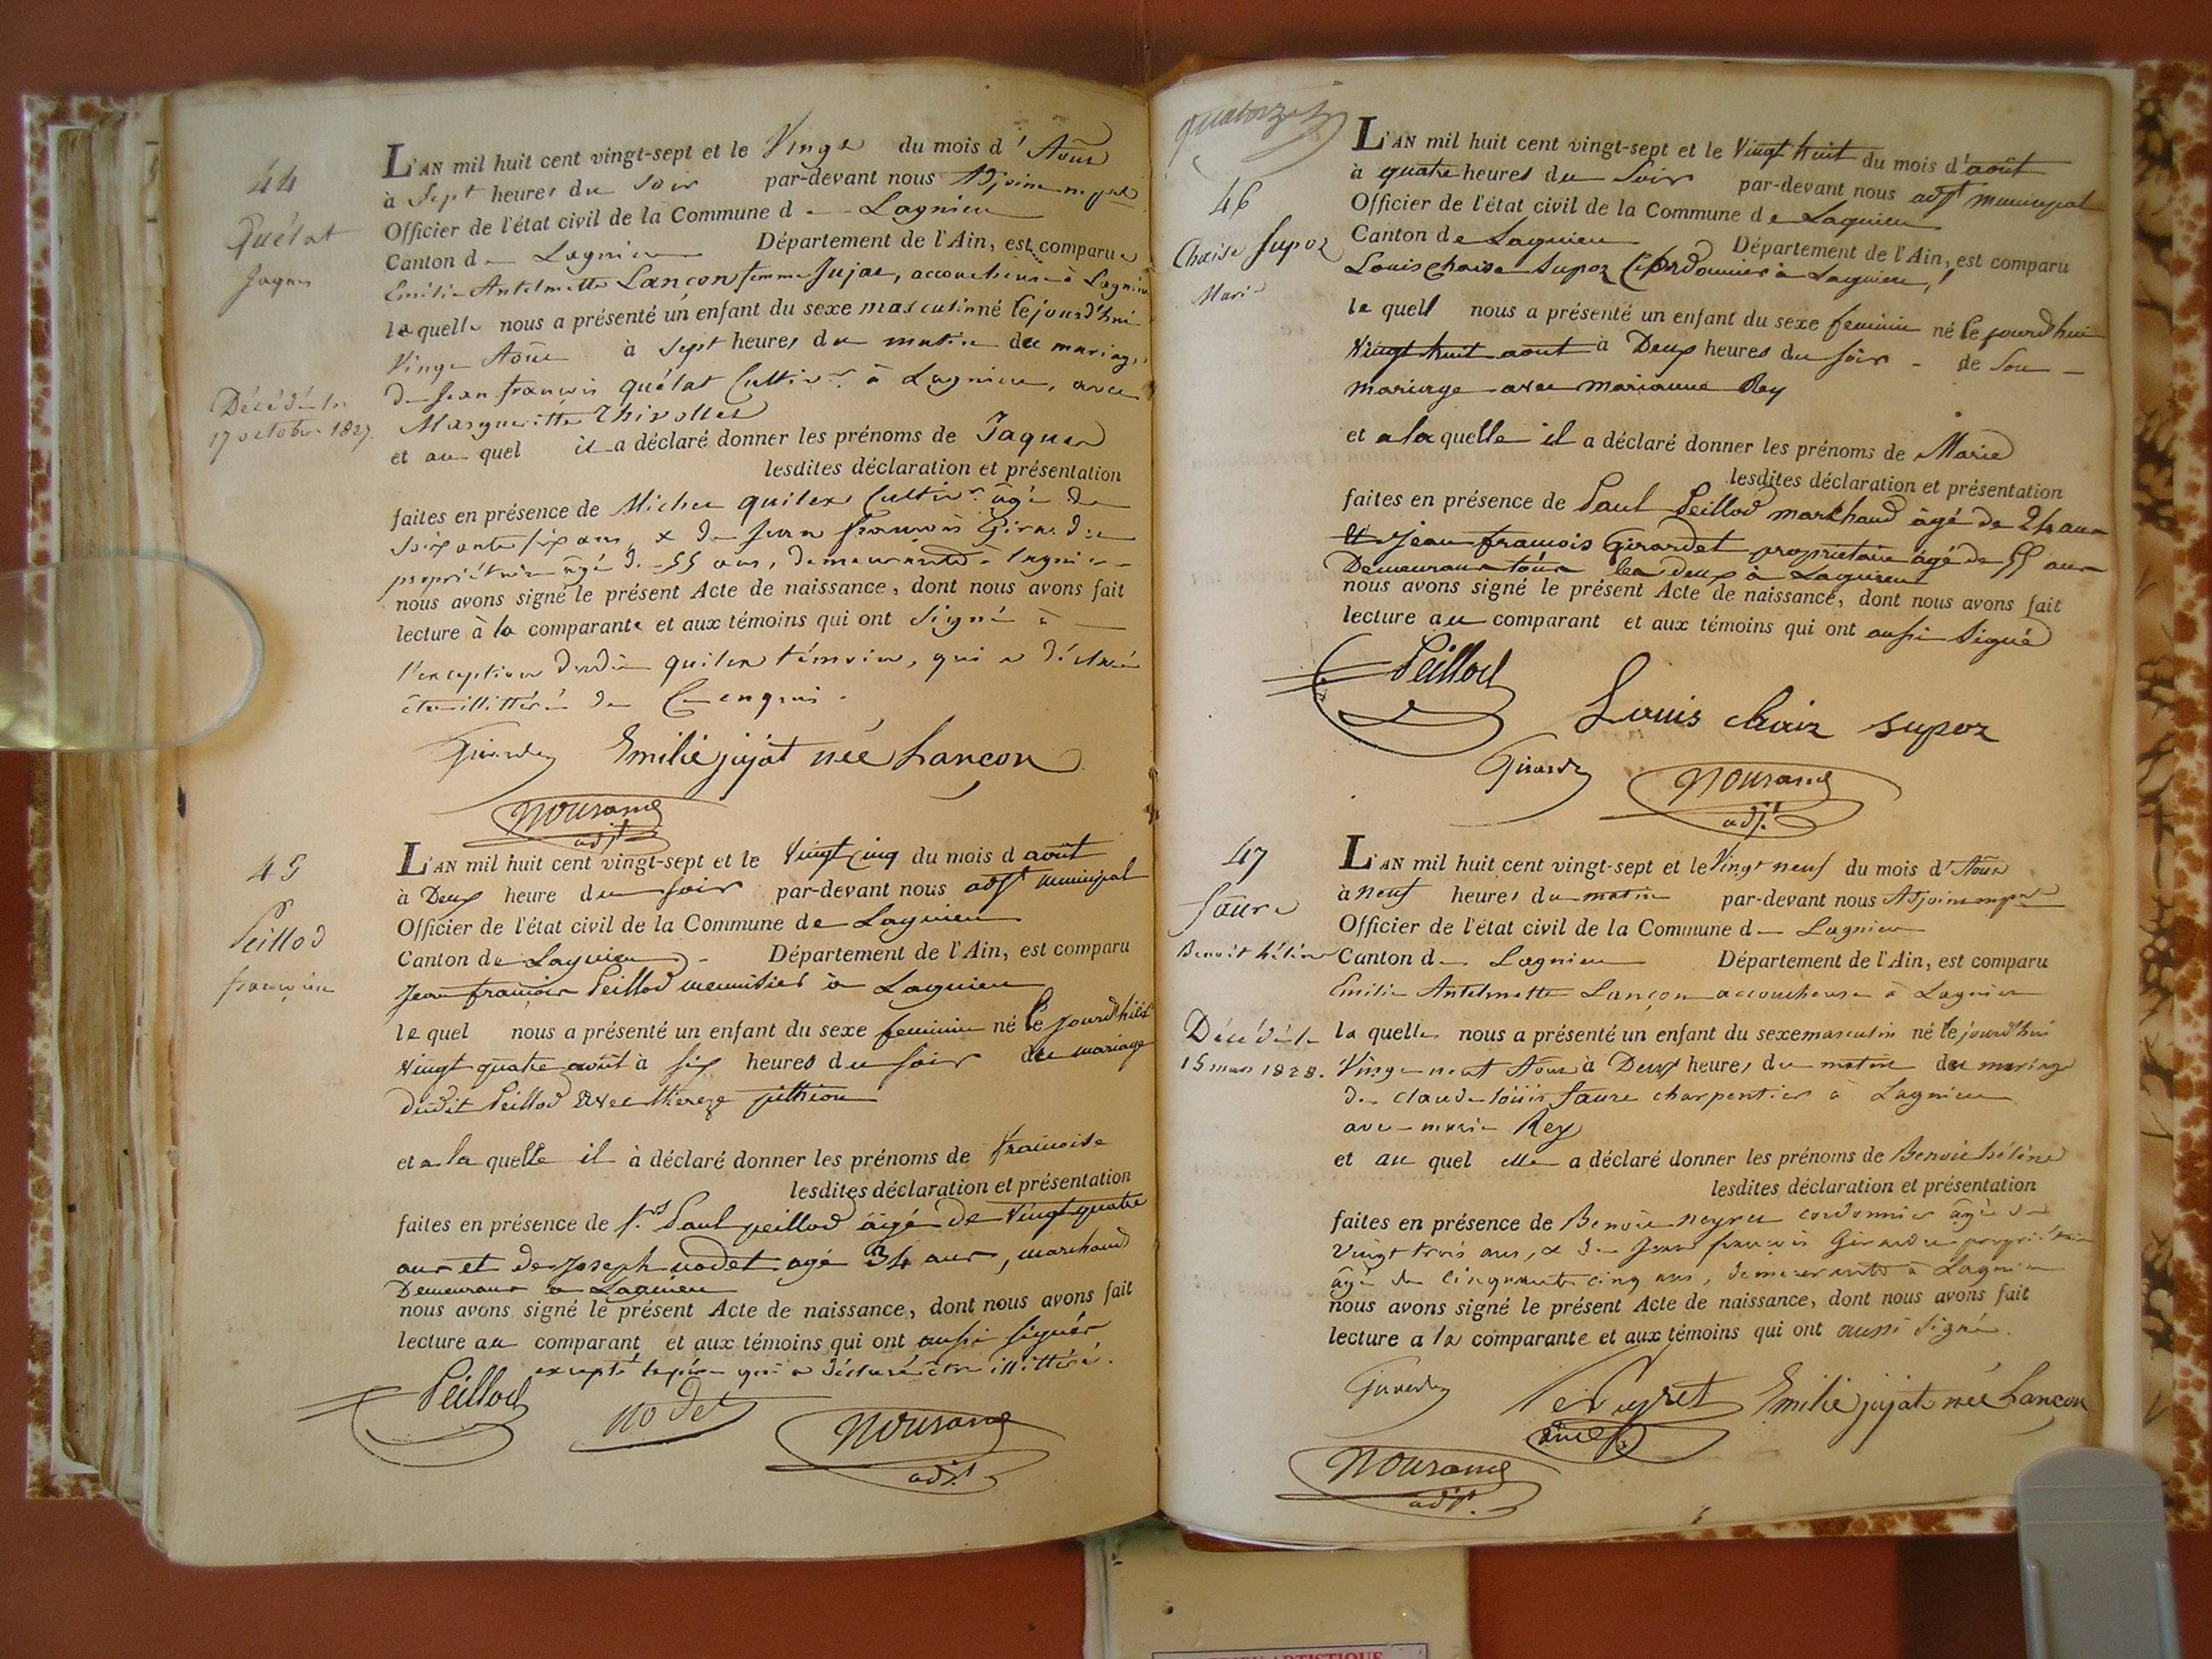 44
Quélat
Jaques
Décédé le
17 octobre 1827.
L'AN mil huit cent vingt-sept et le Vingt du mois d'Août
à Sept heures du Soir par-devant nous Adjoint mpal
Officier de l'état civil de la Commune de Lagnieu
Canton de Lagnieu Département de l'Ain, est comparue
Emilie Antelmette Lançon femme Jujat, accoucheuse à Lagnieu
laquelle nous a présenté un enfant du sexe masculin né cejourd'hui
Vingt Août à Sept heures du matin du mariage
de Jean françois quélat Cultivr. à Lagnieu, avec
Margueritte Thivollet
et au quel il a déclaré donner les prénoms de Jaques
lesdites déclaration et présentation
faites en présence de Michel quilex Cultivr. âgé de
Soixante six ans, & de Jean françois Girardet
propriétaire âgé de 55 ans, demeurants à Lagnieu
nous avons signé le présent Acte de naissance, dont nous avons fait
lecture à la comparante et aux témoins qui ont Signé à
l'exception dudit quilex témoin, qui a déclaré
être illittéré de Ce enquis.
Girardet Emilie jujat née Lancon
Nourame
adjt.
45
Peillod
françoise
L'AN mil huit cent vingt-sept et le Vingt Cinq du mois d août
à Deux heure du soir par-devant nous adjt municipal
Officier de l'état civil de la Commune de Lagnieu
Canton de Lagnieu Département de l'Ain, est comparu
Jean francois Peillod menuisier à Lagnieu
lequel nous a présenté un enfant du sexe feminin né le jourd'huit
Vingt quatre août à six heures du soir du mariage
dudit Peillod avec thereze pithion
et a laquelle il à déclaré donner les prénoms de francoise
lesdites déclaration et présentation
faites en présence de Paul peillod âgé de Vingt quatre
ans et de Joseph nodet agé 34 ans, marchand
Demeurant a Lagnieu
nous avons signé le présent Acte de naissance, dont nous avons fait
lecture au comparant et aux témoins qui ont aussi signés
excepté le père qui a déclaré être illittéré.
Peillod nodet Nourame
adjt.
quatorze
46
Chaise Supoz
Marie
L'AN mil huit cent vingt-sept et le Vingt huit du mois d'août
à quatre heures du Soir par-devant nous adjt municipal
Officier de l'état civil de la Commune de Lagnieu
Canton de Lagnieu Département de l'Ain, est comparu
Louis Chaise Supoz Cordonnier à Lagnieu,
lequell nous a présenté un enfant du sexe feminin né le jourd'hui
Vingt huit aout à Deux heures du soir de Son
mariage avec marianne Rey
et a laquelle il a déclaré donner les prénoms de Marie
lesdites déclaration et présentation
faites en présence de Paul Peillod marchand âgé de 24 ans
et jean francois Girardet proprietaire âgé de 55 ans
Demeurant tous les deux à Lagnieu
nous avons signé le présent Acte de naissance, dont nous avons fait
lecture au comparant et aux témoins qui ont aussi Signé
Peillod
Louis chaiz supoz
Girardet Nourame
adjt.
47
faure
Benoit hélène
Décédé le
15 mars 1828.
L'AN mil huit cent vingt-sept et le Vingt neuf du mois d'Août
à neuf heures du matin par-devant nous Adjoint mpal
Officier de l'état civil de la Commune de Lagnieu
Canton de Lagnieu Département de l'Ain, est comparu
Emilie Antelmette Lançon accoucheuse à Lagnieu
laquelle nous a présenté un enfant du sexe masculin né cejourd'hui
Vingt neuf Août à Deux heures du matin du mariage
de claude loüis faure charpentier à Lagnieu
avec marie Rey
et au quel elle a déclaré donner les prénoms de Benoit hélène
lesdites déclaration et présentation
faites en présence de Benoit neyret cordonnier âgé de
Vingt trois ans, & de Jean françois Girardet propriétaire
âgé de cinquante cinq ans, demeurants à Lagnieu
nous avons signé le présent Acte de naissance, dont nous avons fait
lecture a la comparante et aux témoins qui ont aussi Signé.
Girardet Emilie jujat née Lancon
Nourame
adjt.